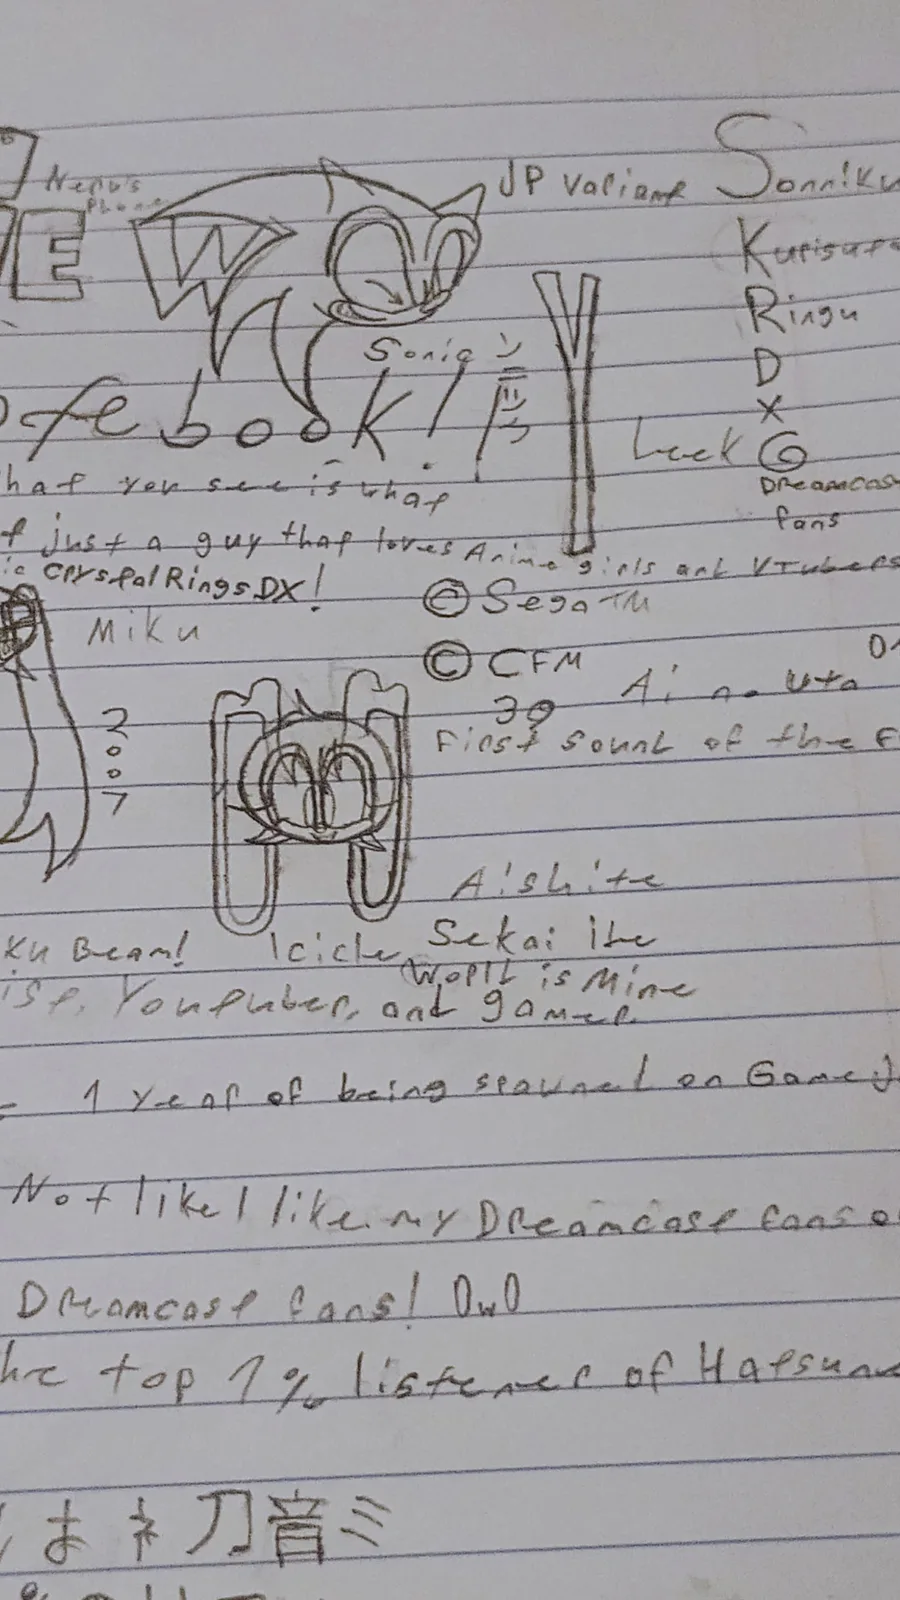 Nepu's
Phone
E W
JP Valiant
Sonniku
Kurisuta
Ringu
D
X
Dreamcas
fans
Sonic
ソニック
ofebook!
Leek
hat you see is what
just a guy that loves Anime girls and VTubers
ic Crystal Rings DX!
© Sega TM
Miku
© CFM
39
2007
Ai no Uta
First Sound of the F
Aishite
ku Beam!
Icicle
Sekai ihe
World is Mine
ist, Youtuber, and gamer
1 Year of being spawned on GameJ
Not like I like my Dreamcast fans o
Dreamcast fans! OwO
he top 1% listener of Hatsune
は ネ 刀 音 ミ